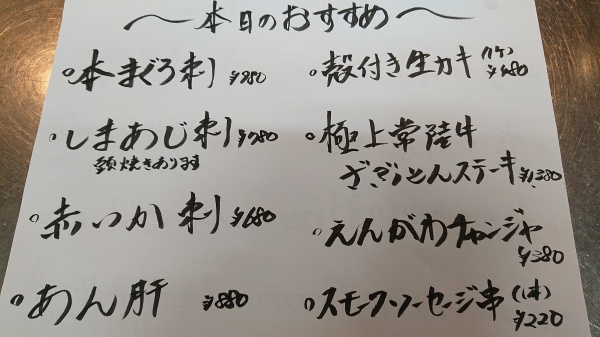 〜本日のおすすめ〜
○本まぐろ刺 ¥980
○しまあじ刺 ¥780
頭焼きあります
○赤いか刺 ¥680
○あん肝 ¥880
○殻付き生カキ(1ケ) ¥480
○極上常陸牛
ざぶとんステーキ ¥1,380
○えんがわチャンジャ
¥380
○スモークソーセージ串(1本)
¥220